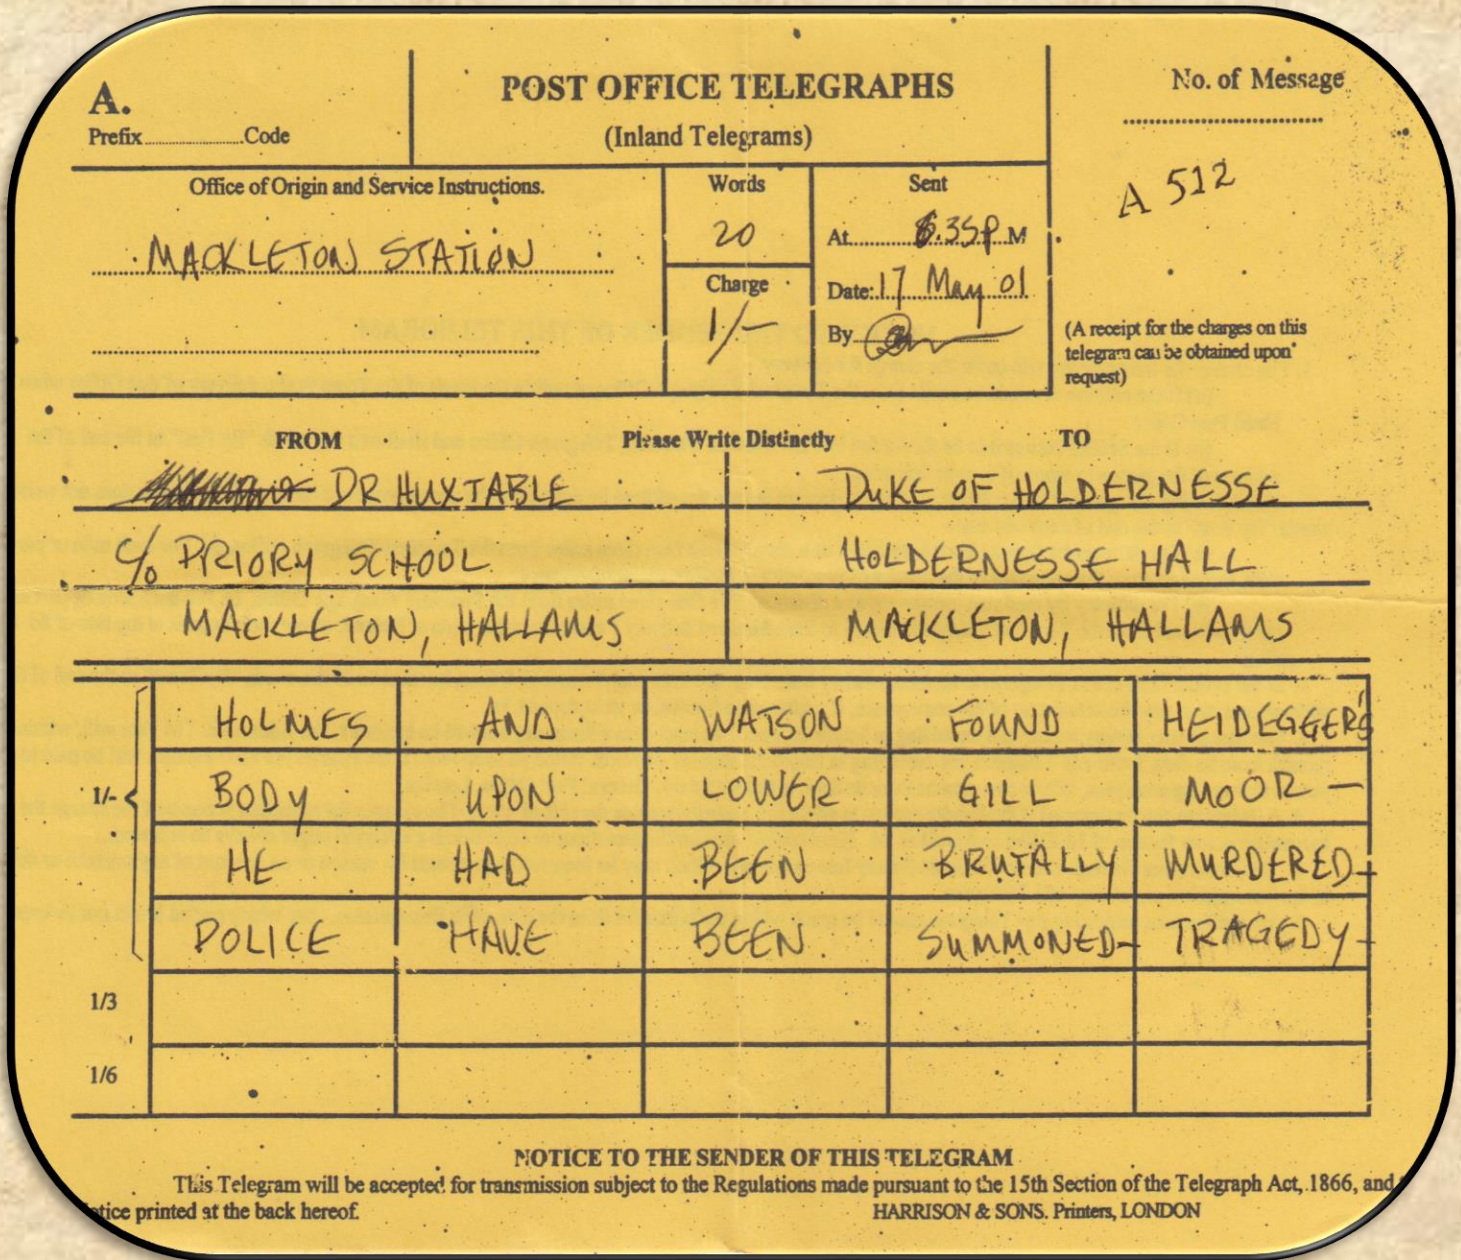 A.
Prefix..................Code
POST OFFICE TELEGRAPHS
(Inland Telegrams)
No. of Message
A 512
Office of Origin and Service Instructions.
MACKLETON STATION
Words
20
Charge
1/-
Sent
At 6.35P.M
Date: 17 May 01
By
(A receipt for the charges on this
telegram can be obtained upon
request)
FROM Please Write Distinctly TO
DR HUXTABLE DUKE OF HOLDERNESSE
C/o PRIORY SCHOOL HOLDERNESSE HALL
MACKLETON, HALLAMS MACKLETON, HALLAMS
HOLMES AND WATSON FOUND HEIDEGGER'S
1/- BODY UPON LOWER GILL MOOR —
HE HAD BEEN BRUTALLY MURDERED-
POLICE HAVE BEEN SUMMONED- TRAGEDY-
1/3
1/6
NOTICE TO THE SENDER OF THIS TELEGRAM
This Telegram will be accepted for transmission subject to the Regulations made pursuant to the 15th Section of the Telegraph Act, 1866, and
printed at the back hereof.
HARRISON & SONS. Printers, LONDON